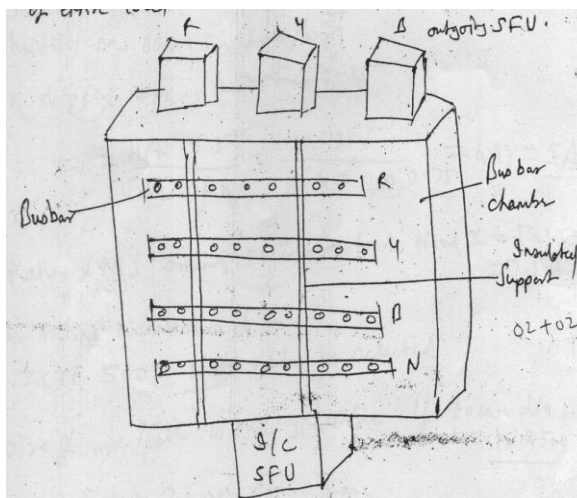 R Y B outgoing SFU.
Busbar
R
Busbar
chamber
Y
Insulated
Support
B
02 + 02
N
I/C
SFU